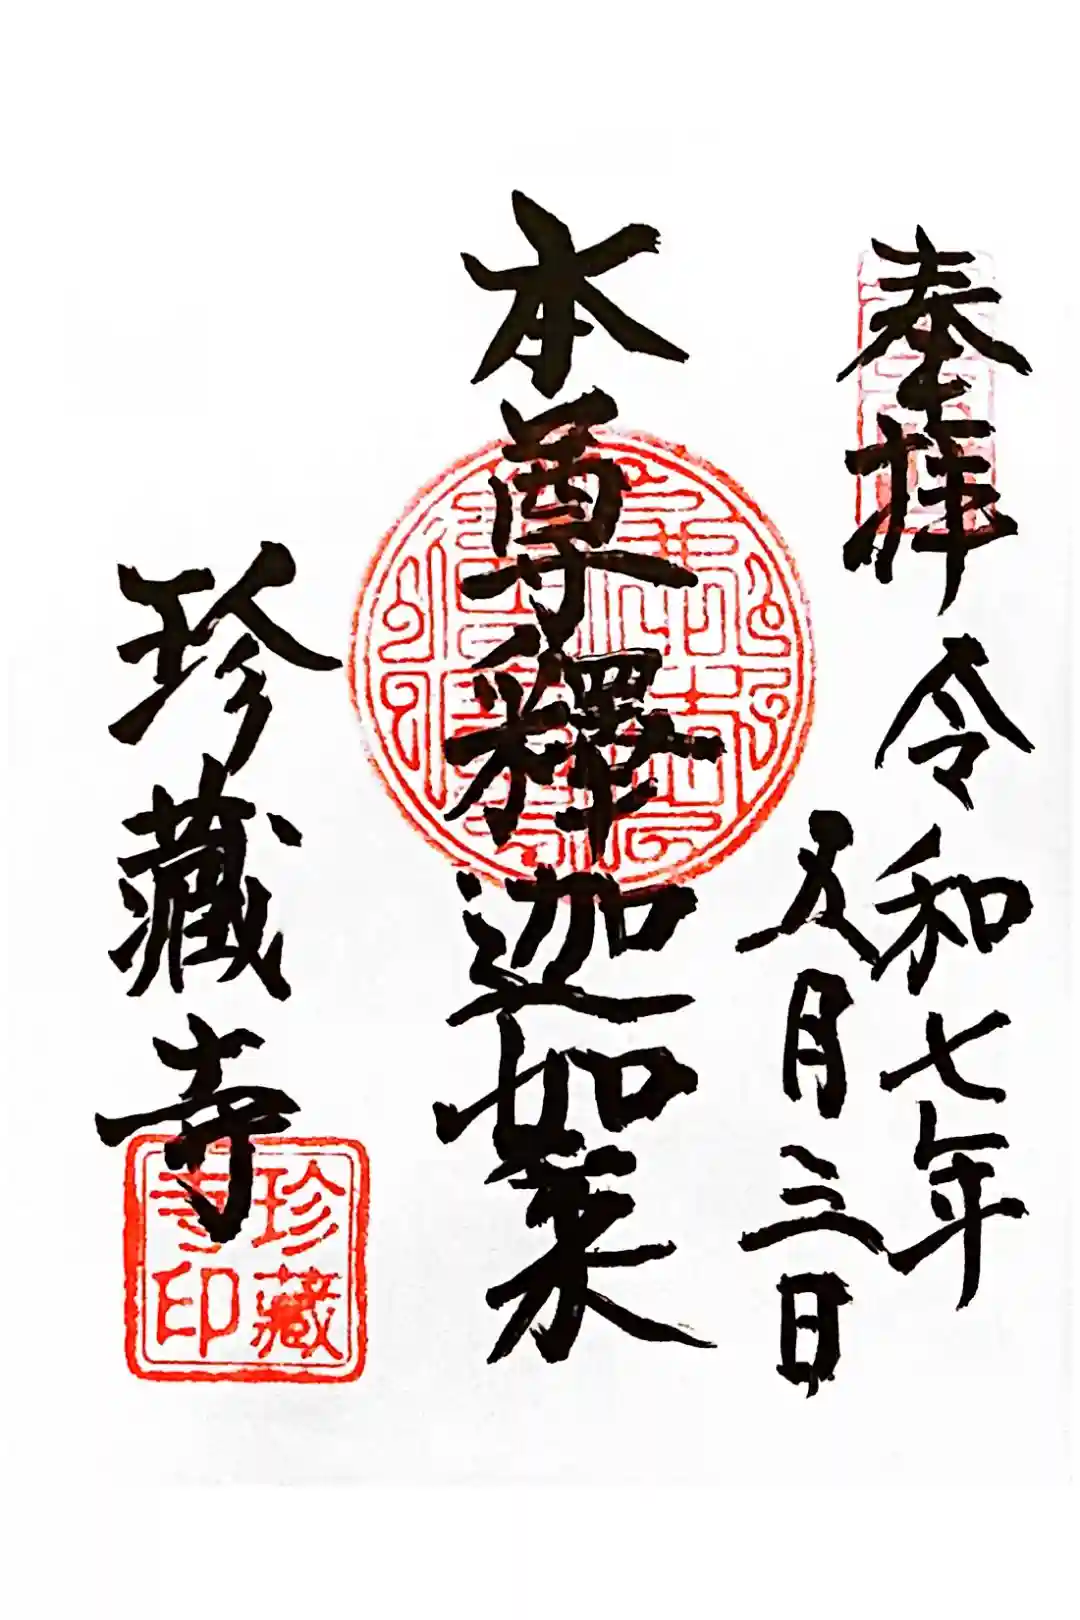 奉拝
令和七年
五月三日
本尊釋迦如来
珍藏寺
珍藏
寺印